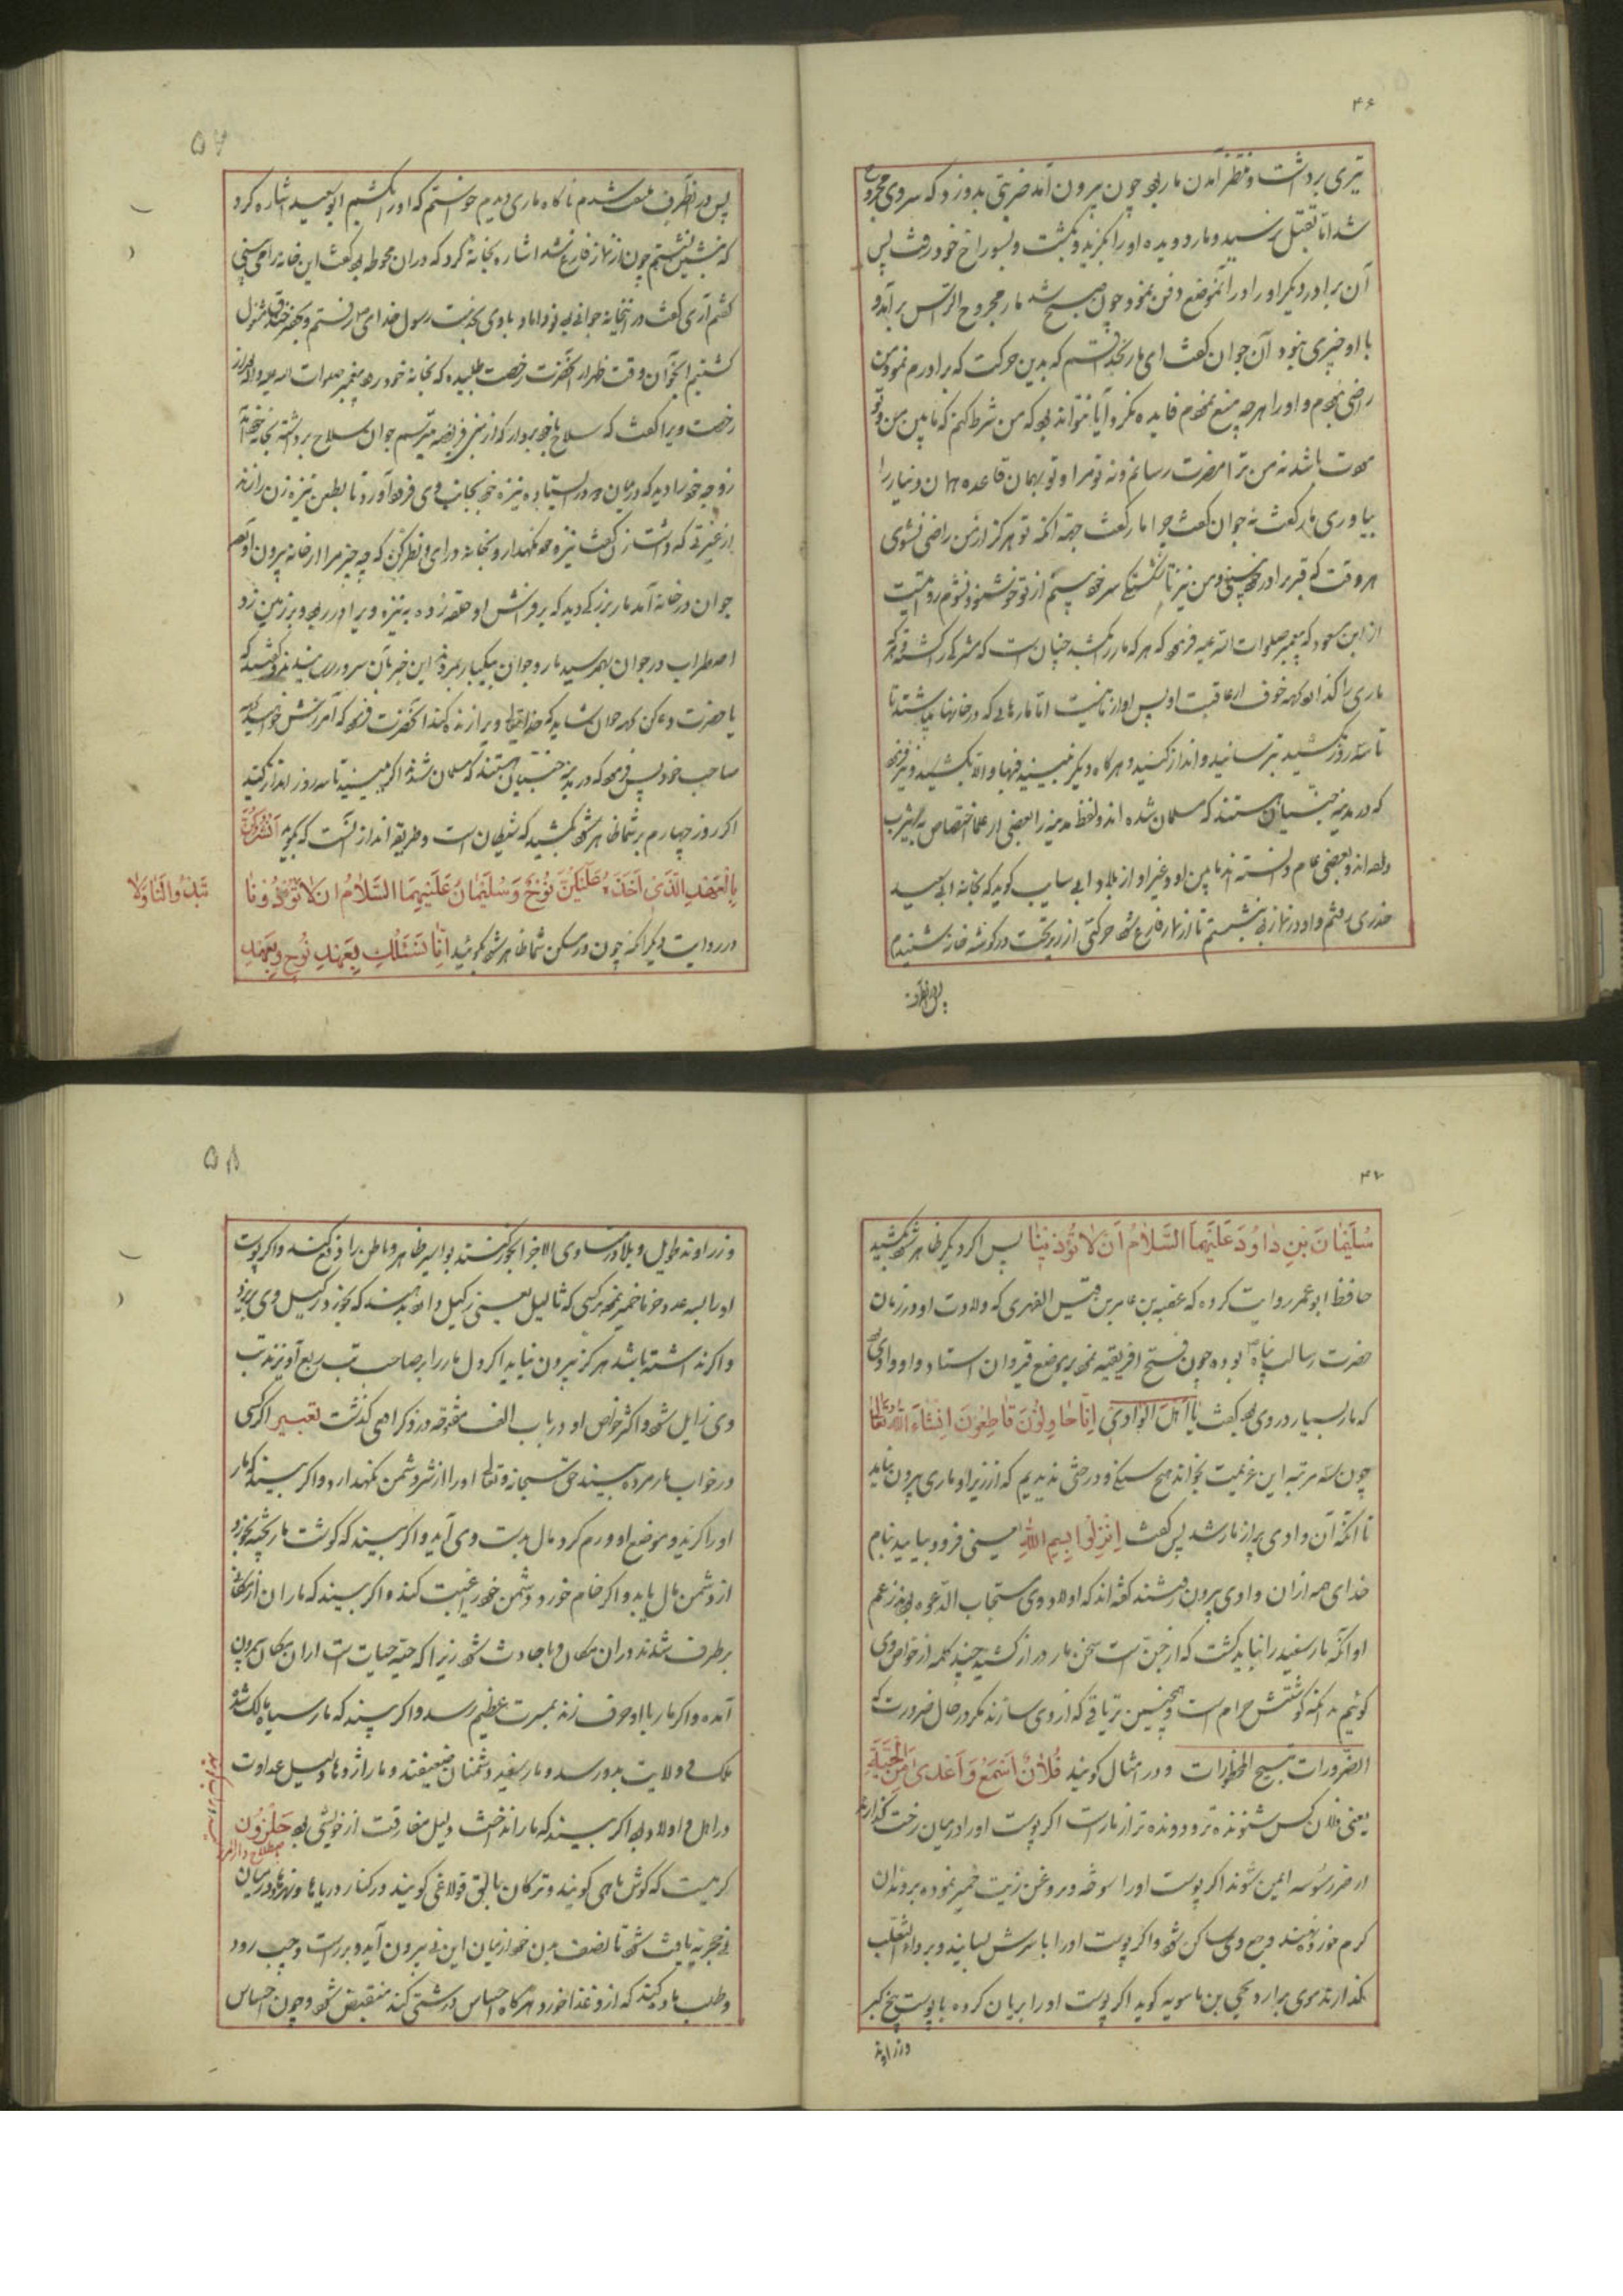 ۴۶
تبری برداشت و منتظر آمدن مار بود چون بیرون آمد ضربتی بدو زد که سر وی مجروح
شد اما بقتل نرسید و مار دویده او را بگزید و بکشت و بسوراخ خود رفت پس
آن برادر دیگر او را در آنموضع دفن نمود چون صبح شد مار مجروح الرأس برآمد و
با او چیزی نبود آن جوان گفت ای مار بخدا قسم که بدین حرکت که برادرم نمود من
راضی نبودم و او را هر چه منع نمودم فایده نکرد آیا میتواند بود که من شرط کنم که ما بین من و تو
موت باشد نه من ترا مضرت رسانم و نه تو مرا و تو بهمان قاعده همان دینار را
بیاوری مار گفت نه جوان گفت چرا مار گفت جهة آنکه تو هرگز از من راضی نشوی
هر وقت که قبر برادر خود بینی و من نیز تا شکستگی سر خود بینم از تو خوشنود نشوم روایتست
از ابن مسعود که پیغمبر صلوات الله علیه فرمود که هر که مار را بکشد چنان است که مشرکی را کشته و هر که
ماری را گذارد بجهة خوف از عاقبت او پس او از ما نیست اما مارهائی که در خانها میباشند تا
تا سه روز نکشید بترسانید و انذار کنید و هر گاه دیگر نبینید فبها و الا بکشید و نیز فرمود
که در مدینه جنیان هستند که مسلمان شده اند و لفظ مدینه را بعضی از علما اختصاص به یثرب
داده اند و بعضی عام دانسته اند ما بین او و غیر او از بلاد ابی سایب گوید که بخانه ابی سعید
خدری رفتم و او در نماز بود نشستم تا از نماز فارغ شود حرکتی از زیر تخت در گوشه خانه شنیدم
پس در انطرف
۵۷
پس در انطرف ملتفت شدم ناگاه ماری دیدم خواستم که او را بکشم ابو سعید اشاره کرد
که بنشین نشستم چون از نماز فارغ شد اشاره بخانه کرد که در ان محوطه بود گفت این خانه را می بینی
گفتم آری گفت در اینخانه جوانی بود نو داماد با وی بخدمت رسول خدای ص رفتیم و بحفر خندق مشغول
گشتیم آنجوان وقت ظهر از آنحضرت رخصت طلبیده که بخانه خود رود پیغمبر صلوات الله علیه و آله او را
رخصت ویرا گفت که سلاح با خود بردار که از بنی قریضه میترسم جوان سلاح برداشته بخانه خود آمد
زوجه خود را دید که در میان دو در ایستاده نیزه خود بجانب وی فرود آورد تا بطعن نیزه زن را زند
از غیرتی که داشت زن گفت نیزه خود نگهدار و بخانه درای و نظر کن که چه چیز مرا از خانه بیرون آورده
جوان در خانه آمد مار بزرگی دید که بر فرش او حلقه زده به نیزه ویرا در ربود و بر زمین زد
اضطراب در جوان بهم رسید مار و جوان بیکبار بمردند این خبر بآن سرور رسانیدند و گفتند که
یا حضرت دعا کن بهر جوان شاید که خدایتعالی ویرا زنده کند آنحضرت فرمود که آمرزش خواهید بهر
صاحب خود پس فرمود که در مدینه جنیان هستند که مسلمان شده اند اگر بینید تا سه روز انذار کنید
اگر روز چهارم بر شما ظاهر شود بکشید که شیطان است و طریقه انذار آنست که بگوید انشدکن
بِالْعَهْدِ الَّذِی اَخَذَهُ عَلَیْکُنَّ نُوحٌ وَ سُلَیْمَانُ عَلَیْهِمَا السَّلَامُ اَنْ لَا تُؤْذُونَا
تَبْدُوا لَنَا وَلَا
در روایت دیگر آنکه چون در مسکن شما ظاهر شود بگوئید اِنَّا نَسْئَلُكِ بِعَهْدِ نُوحٍ وَ بِعَهْدِ
۴۷
سُلَیْمَانَ بْنِ دَاوُدَ عَلَیْهِمَا السَّلَامُ اَنْ لَا تُؤْذِیْنَا پس اگر دیگر ظاهر شود بکشید
حافظ ابو عمر روایت کرده که عقبه بن عامر بن قیس الفهری که ولادت او در زمان
حضرت رسالت پناه ص بوده چون فتح افریقیه نمود بر موضع قیروان استاد و او وادی بود
که مار بسیار در وی بود گفت یَا اَهْلَ الْوَادِی اِنَّا حَاوِلُونَ قَاطِعُونَ اِنْشَاءَ اللّٰهُ تَعَالٰی
چون سه مرتبه این عزیمت بخواند هیچ سنگی و درختی ندیدیم که از زیر او ماری بیرون نیاید
تا آنکه آن وادی پر از مار شد پس گفت اِنْزِلُوا بِسْمِ اللّٰهِ یعنی فرود بیایید بنام
خدای همه از ان وادی بیرون رفتند گفته اند که اولاد وی مستجاب الدعوه بودند زعم
او آنکه مار سفید را نباید کشت که از جن است سخن مار دراز کشید چند کلمه از خواص وی
گوئیم بدانکه گوشتش حرام است و همچنین تریاقی که از وی سازند مگر در حال ضرورت که
الضرورات تبیح المحظورات و در امثال گویند فُلَانٌ اَسْمَعُ وَ اَعْدٰی مِنَ الْحَیَّةِ
یعنی فلان کس شنونده تر و دونده تر از مار است اگر پوست او را در میان رخت گذارند
از ضرر سوسه ایمن شوند اگر پوست او را سوخته و بروغن زیت خمیر نموده بر دندان
کرم خورده نهند وجع وی ساکن شود و اگر پوست او را با سرش بسایند و بر داء الثعلب
بگذارند موی برارد یحیی بن ماسویه گوید اگر پوست او را بریان کرده با پوست بیخ کبر
و زراوند
۵۸
و زراوند طویل و بلادر متساوی الاجزا بخور کنند بواسیر ظاهر و باطن را دفع کند و اگر پوست
واگر نداشته باشد هرگز بیرون نیاید اگر دل مار را بر صاحب تب ربع آویزند تب
وی زایل شود و اکثر خواص او در باب الف مفتوحه در ذکر افعی گذشت تعبیر اگر کسی
در خواب مار مرده بیند حق سبحانه و تعالی او را از شر دشمن نگهدارد و اگر بیند که مار
او را گزید و موضع او ورم کرد مال بدست وی آید و اگر بیند که گوشت مار پخته بخورد
از دشمن مال یابد و اگر خام خورد دشمن خود را غیبت کند و اگر بیند که ماران از مکانی
برطرف شدند در ان مکان وبا حادث شود زیرا که حیة حیات است از ان مکان بیرون
آمده و اگر مار با او حرف زند بمسرت عظیم رسد و اگر بیند که مار سیاه مالک شده
ملک و ولایت بدو رسد و مار سفید دشمنان ضعیفند و مار اژدها دلیل عداوت
در اهل و اولاد بود اگر بیند که مار انداخت دلیل مفارقت از خویشی بود حَلَزُون
کرمیست که گوش ماهی گویند و ترکان بالق قولاغی گویند در کنار دریاها و نهرها در میان
نی حجریه یافت شود تا نصف بدن خود از میان این نی بیرون آید و بر راست و چپ رود
و طلب ماده کند که از و غذا خورد و هر گاه احساس درشتی کند منقبض شود و چون احساس